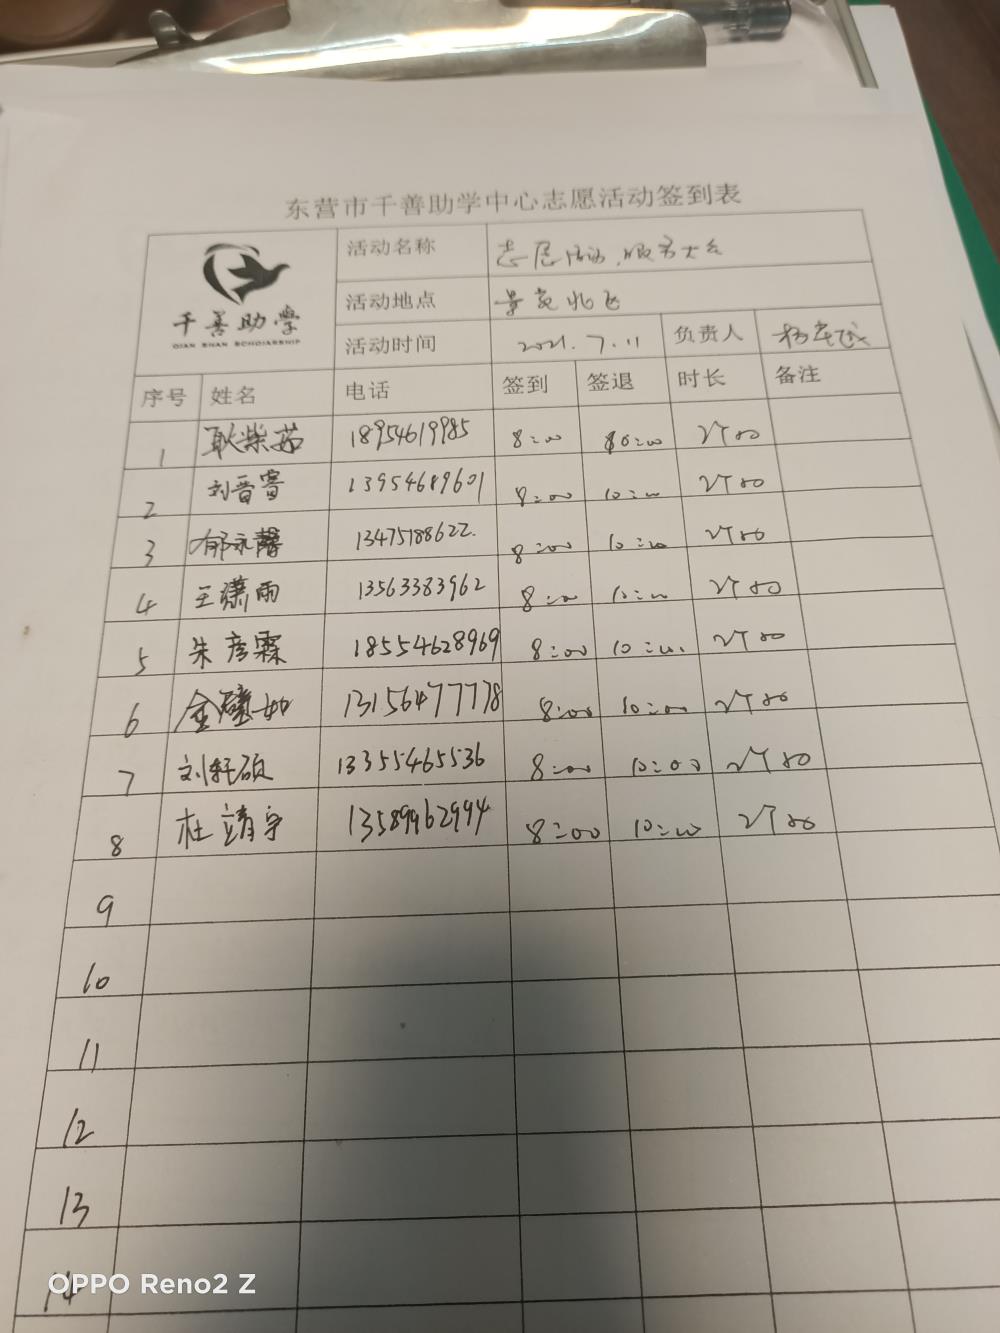 东营市千善助学中心志愿活动签到表
千善助学
QIAN SHAN SCHOIARSHIP
活动名称
活动地点
活动时间 2021.7.11 负责人
序号 姓名 电话 签到 签退 时长 备注
1 耿紫茹 18954619985 8:00 10:00 2个小时
2 刘晋睿 13954689601 8:00 10:00 2个小时
3 郁永馨 13475188622. 8:00 10:00 2个小时
4 王潇雨 13563383962 8:00 10:00 2个小时
5 朱彦霖 18554628969 8:00 10:00 2个小时
6 金璧如 13156477778 8:00 10:00 2个小时
7 刘轩硕 13355465536 8:00 10:00 2个小时
8 杜靖宇 13589962994 8:00 10:00 2个小时
9
10
11
12
13
14
OPPO Reno2 Z